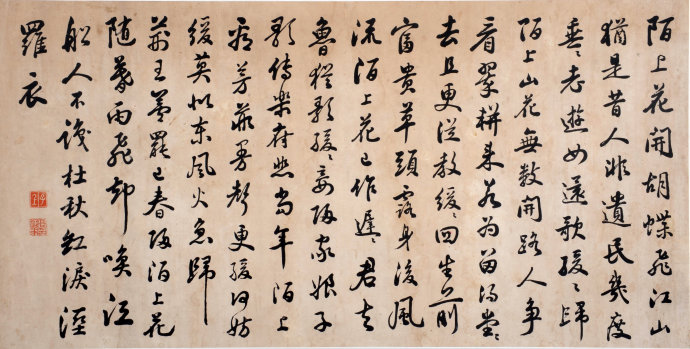 陌上花開胡蝶飛江山
猶是昔人非遺民幾度
垂〻老遊女還歌緩〻歸
陌上山花無數開路人爭
看翠輧來若為留得堂〻
去且更從教緩〻回生前
富貴草頭露身後風
流陌上花已作遲〻君去
魯猶歌緩〻妾歸家娘子
歌傳樂府悲當年陌上
看芳菲曼聲更緩何妨
緩莫似東風火急歸
荊王夢罷已春歸陌上花
隨暮雨飛卻喚江
船人不識杜秋紅淚溼
羅衣